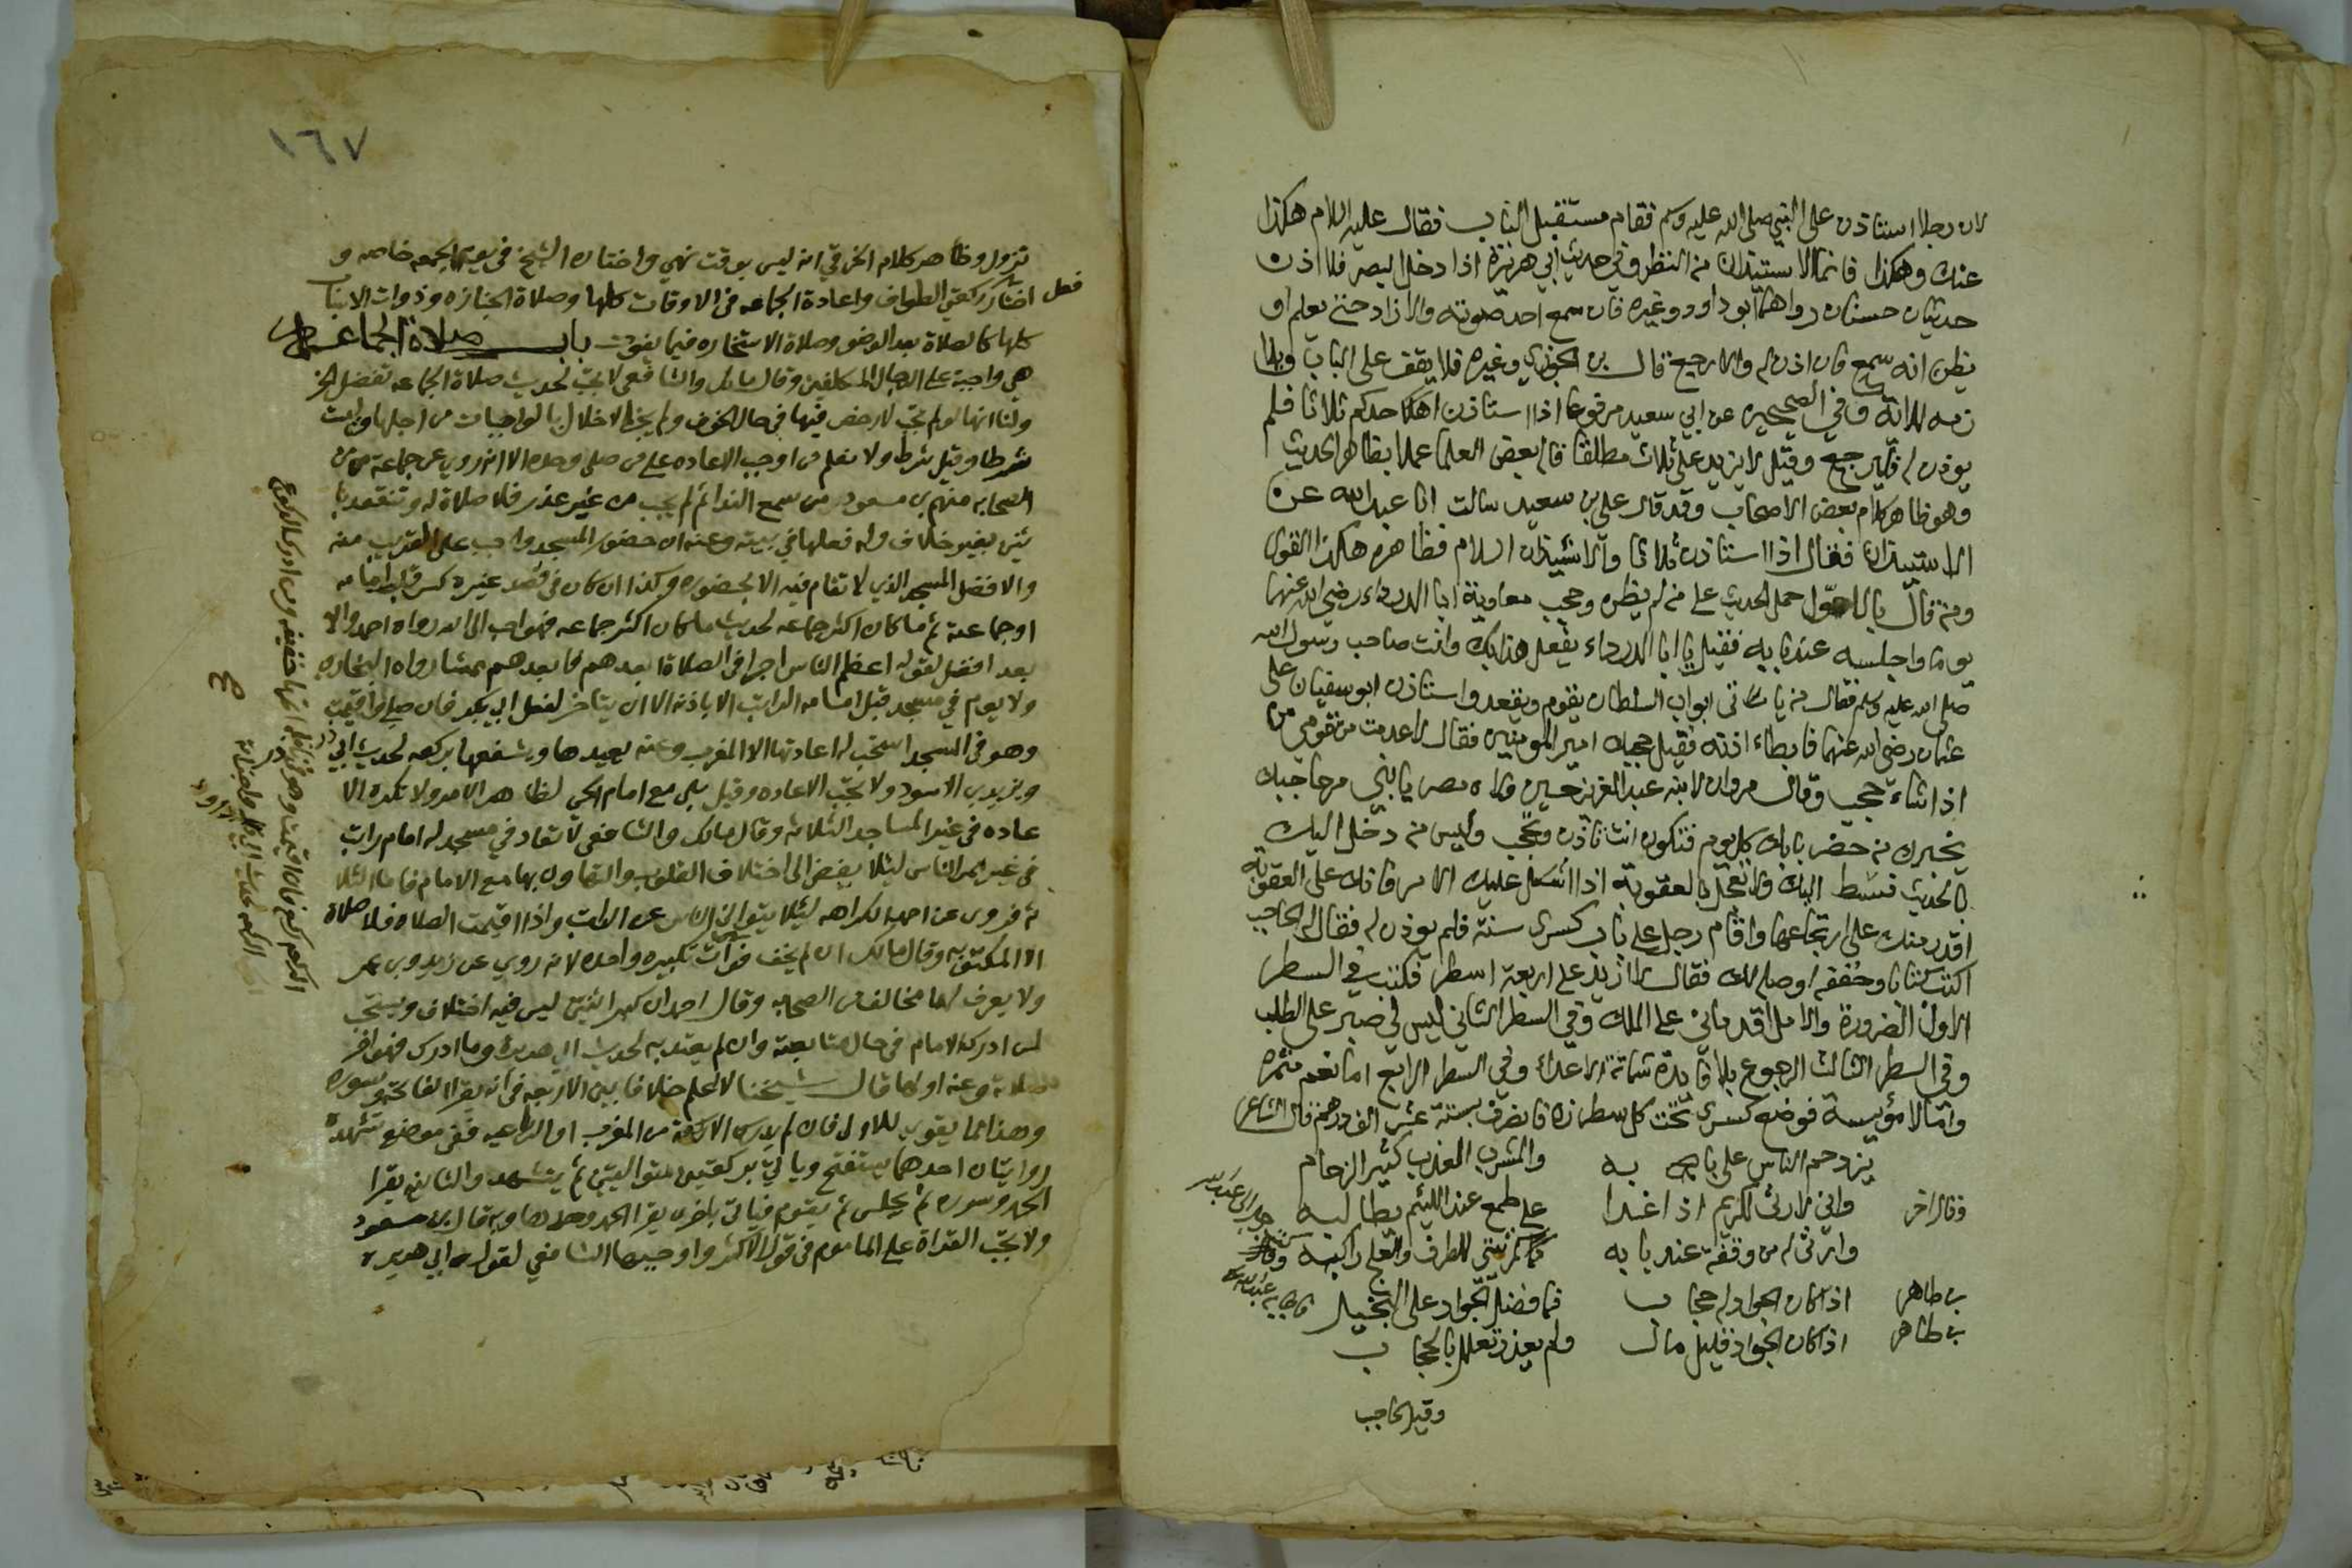 لان رجلا استاذن على النبي صلى الله عليه وسلم فقام مستقبل الباب فقال عليه السلام هكذا
عنك وهكذا فانما الاستيذان من النظر وفي حديث ابي هريرة اذا دخل البصر فلا اذن
حديثان حسنان رواهما ابو داود وغيره فان سمع احد صوته والا زاد حتى يعلم او
يظن انه سمع فان اذن له والا رجع قال بن الجوزي وغيره فلا يقف على الباب
وفي الصحيحين عن ابي سعيد مرفوعا اذا استاذن احدكم ثلاثا فلم
يوذن له فليرجع وقيل لا يزيد على ثلاث مطلقا قاله بعض العلما عملا بظاهر الحديث
وهو ظاهر كلام بعض الاصحاب وقد قال علي بن سعيد سالت ابا عبد الله عن
الاستيذان فقال اذا استاذن ثلاثا والاستيذان السلام فظاهره هكذا القول
ومن قال بالاول حمل الحديث على من لم يظن وحجب معاوية ابا الدرداء رضي الله عنهما
يوما واجلسه عند بابه فقيل يا ابا الدرداء يفعل هذا بك وانت صاحب رسول الله
صلى الله عليه وسلم فقال من يات ابواب السلطان يقوم ويقعد واستاذن ابو سفيان على
عثمان رضي الله عنهما فابطاء اذنه فقيل حجبك امير المومنين فقال لا عدمت من قومي من
اذا شاء حجب وقال مروان لابنه عبد العزيز حين ولاه مصر يا بني مر حاجبك
يخبرك من حضر بابك كل يوم فتكون انت تاذن وتحجب وليس من دخل اليك
بالحديث فينبسط اليك ولا تعجل بالعقوبة اذا اشكل عليك الامر فانك على العقوبة
اقدر منك على ارتجاعها واقام رجل على باب كسرى سنة فلم يوذن له فقال له الحاجب
اكتب كتابا وخففه اوصله لك فقال لا ازيد على اربعة اسطر فكتب في السطر
الاول الضرورة والامل اقدماني على الملك وفي السطر الثاني ليس لي صبر على الطلب
وفي السطر الثالث الرجوع بلا فايدة شماتة الاعداء وفي السطر الرابع اما نعم مثمرة
واما لا مؤيسة فوضع كسرى تحت كل سطر زه فانصرف بستة عشر الف درهم قال الشاعر
يزدحم الناس على بابه والمشرب العذب كثير الزحام
وقال اخر واني لارثي للكريم اذا غدا على طمع عند اللئيم يطالبه
وارثي له من وقفة عند بابه كمرثيتي للطرف والعلج راكبه
بن طاهر اذا كان الجواد له حجاب فما فضل الجواد على البخيل
بن طاهر اذا كان الجواد قليل مال ولم يعذر تعلل بالحجاب
وقيل لحاجب
١٦٧
تزول وظاهر كلام الخرقي انه ليس بوقت نهي واختار الشيخ في يوم الجمعه خاصه و
فعل ركعتي الطواف واعادة الجماعه في الاوقات كلها وصلاة الجنازه وذوات الاسباب
كلها كالصلاة بعد الوضو وصلاة الاستخاره فيما يفوت باب صلاة الجماعه
هي واجبة على الرجال المكلفين وقال مالك والشافعي لا تجب لحديث صلاة الجماعه تفضل
ولنا انها لو لم تجب لا رخص فيها في حال الخوف ولم يجز الاخلال بالواجبات من اجلها وليست
شرطا وقيل شرط ولا نعلم من اوجب الاعاده على من صلى وحده الا انه روي عن جماعة من
الصحابه منهم بن مسعود من سمع الندا ثم لم يجب من غير عذر فلا صلاة له وتنعقد با
ثنين بغير خلاف وله فعلها في بيته وعنه ان حضور المسجد واجب على القريب منه
والافضل المسجد الذي لا تقام فيه الا بحضوره وكذا ان كان في قصد غيره كسر قلب امامه
او جماعته ثم ما كان اكثر جماعه لحديث ما كان اكثر جماعه فهو احب الى الله رواه احمد والا
بعد افضل لقوله اعظم الناس اجرا في الصلاة ابعدهم فابعدهم ممشا رواه البخاري
ولا يوم في مسجد قبل امامه الراتب الا باذنه الا ان يتاخر لفعل ابي بكر فان صلى واقيمت
وهو في المسجد استحب له اعادتها الا المغرب وعنه يعيدها ويشفعها بركعه لحديث ابي ذر
ويزيد بن الاسود ولا تجب الاعاده وقيل بلى مع امام الحي لظاهر الامر ولا تكره الا
عاده في غير المساجد الثلاثه وقال مالك والشافعي لا تعاد في مسجد له امام راتب
في غير ممر الناس لئلا يفضي الى اختلاف القلوب والتهاون بها مع الامام فاما الثلا
ثه فروي عن احمد الكراهه لئلا يتوانى الناس عن الراتب واذا اقيمت الصلاه فلا صلاة
الا المكتوبه وقال مالك ان لم يخف فوات تكبيره واحده لانه روي عن زيد وبن عمر
ولا يعرف لهما مخالف من الصحابه وقال احمد ان كبر اثنتين ليس فيه اختلاف ويستحب
لمن ادرك الامام في حال متابعته وان لم يعتد به لحديث ابي هريرة وما ادرك فهو اخر
صلاته وعنه اولها قال شيخنا لا اعلم خلافا بين الاربعه في انه يقرا الفاتحه وسوره
وهذا مما يقوي للاول فان لم يدرك الا ركعة من المغرب او الرباعيه ففي موضع تشهده
روايتان احدهما يستفتح وياتي بركعتين متواليتين ثم يتشهد والثانيه يقرا
الحمد وسوره ثم يجلس ثم يقوم فياتي باخرى يقرا الحمد وحدها وبه قال بن مسعود
ولا تجب القراة على الماموم في قول الاكثر واوجبها الشافعي لقول ابي هريره